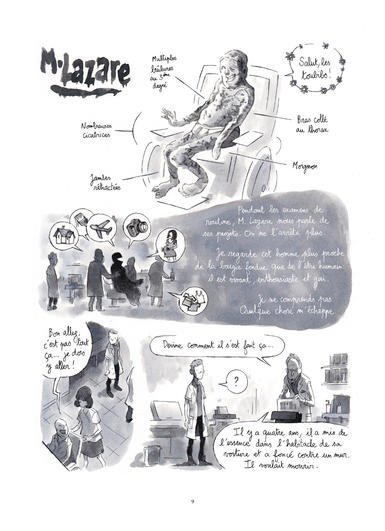 M. Lazare
Multiples
brûlures
au 3ème
degré
Salut, les
toubibs!
Nombreuses
cicatrices
Bras collé
au thorax
Moignon
Jambes
rétractées
Pendant les examens de
routine, M. Lazare nous parle de
ses projets. On ne l'arrête plus.
Je regarde cet homme plus proche
de la bougie fondue que de l'être humain.
Il est vivant, enthousiaste et gai.
Je ne comprends pas.
Quelque chose m'échappe.
Bon allez,
c'est pas tout
ça... je dois
y aller!
Devine comment il s'est fait ça...
?
Il y a quatre ans, il a mis de
l'essence dans l'habitacle de sa
voiture et a foncé contre un mur.
Il voulait mourir.
9